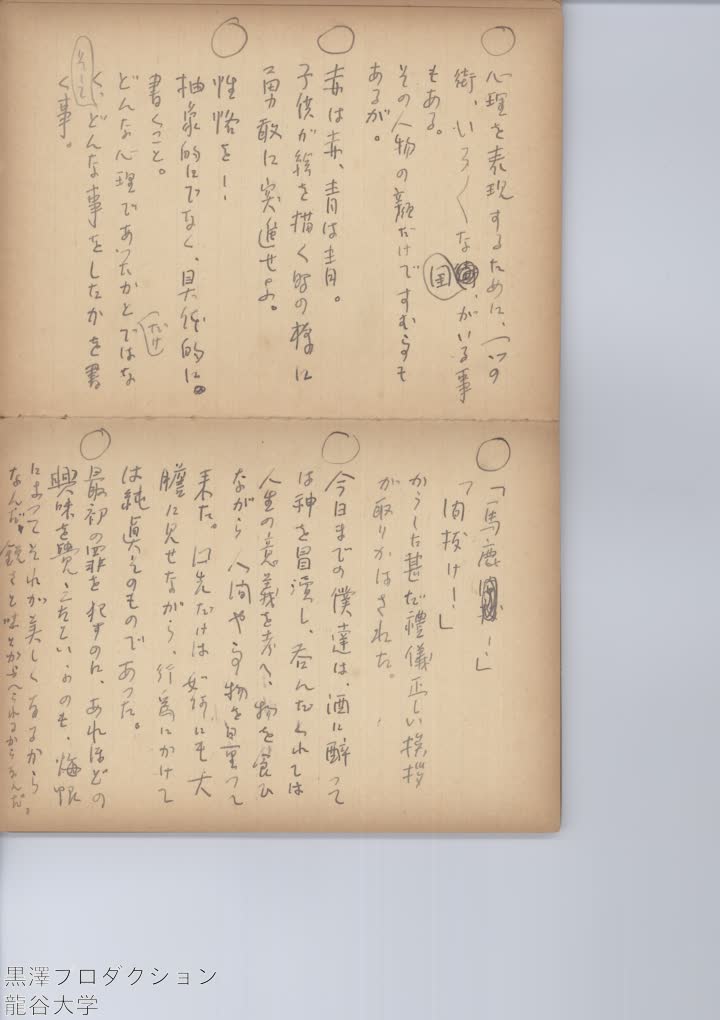 心理を表現するために、一つの
街、いろ〳〵な国、がいる事
もある。
その人物の顔だけですむ
あるが。
赤は赤、青は青。
子供が絵を描く時の様に
勇敢に実進せよ。
性格を――
抽象的にでなく、具体的に
書くこと。
どんな心理であったかとではな
くってどんな事をしたかを書
く事。
だけ
「馬鹿――」
「間抜け――」
かうした甚だ禮儀正しい挨拶
が取りかはされた。
今日までの僕達は、酒に醉って
は神を冒瀆し、呑んだくれては
人生の意義を考へ、物を食ひ
ながら人間やら物を
来た。口先だけは如何にも大
膽に見せながら、行為にかけて
は純真そのものであった。
最初の罪を犯すのに、あれほどの
興味を覺えたといふのも、悔恨
によつてそれが美しくなるから
なんだ。鋭さと味とが
黒澤プロダクション
龍谷大学